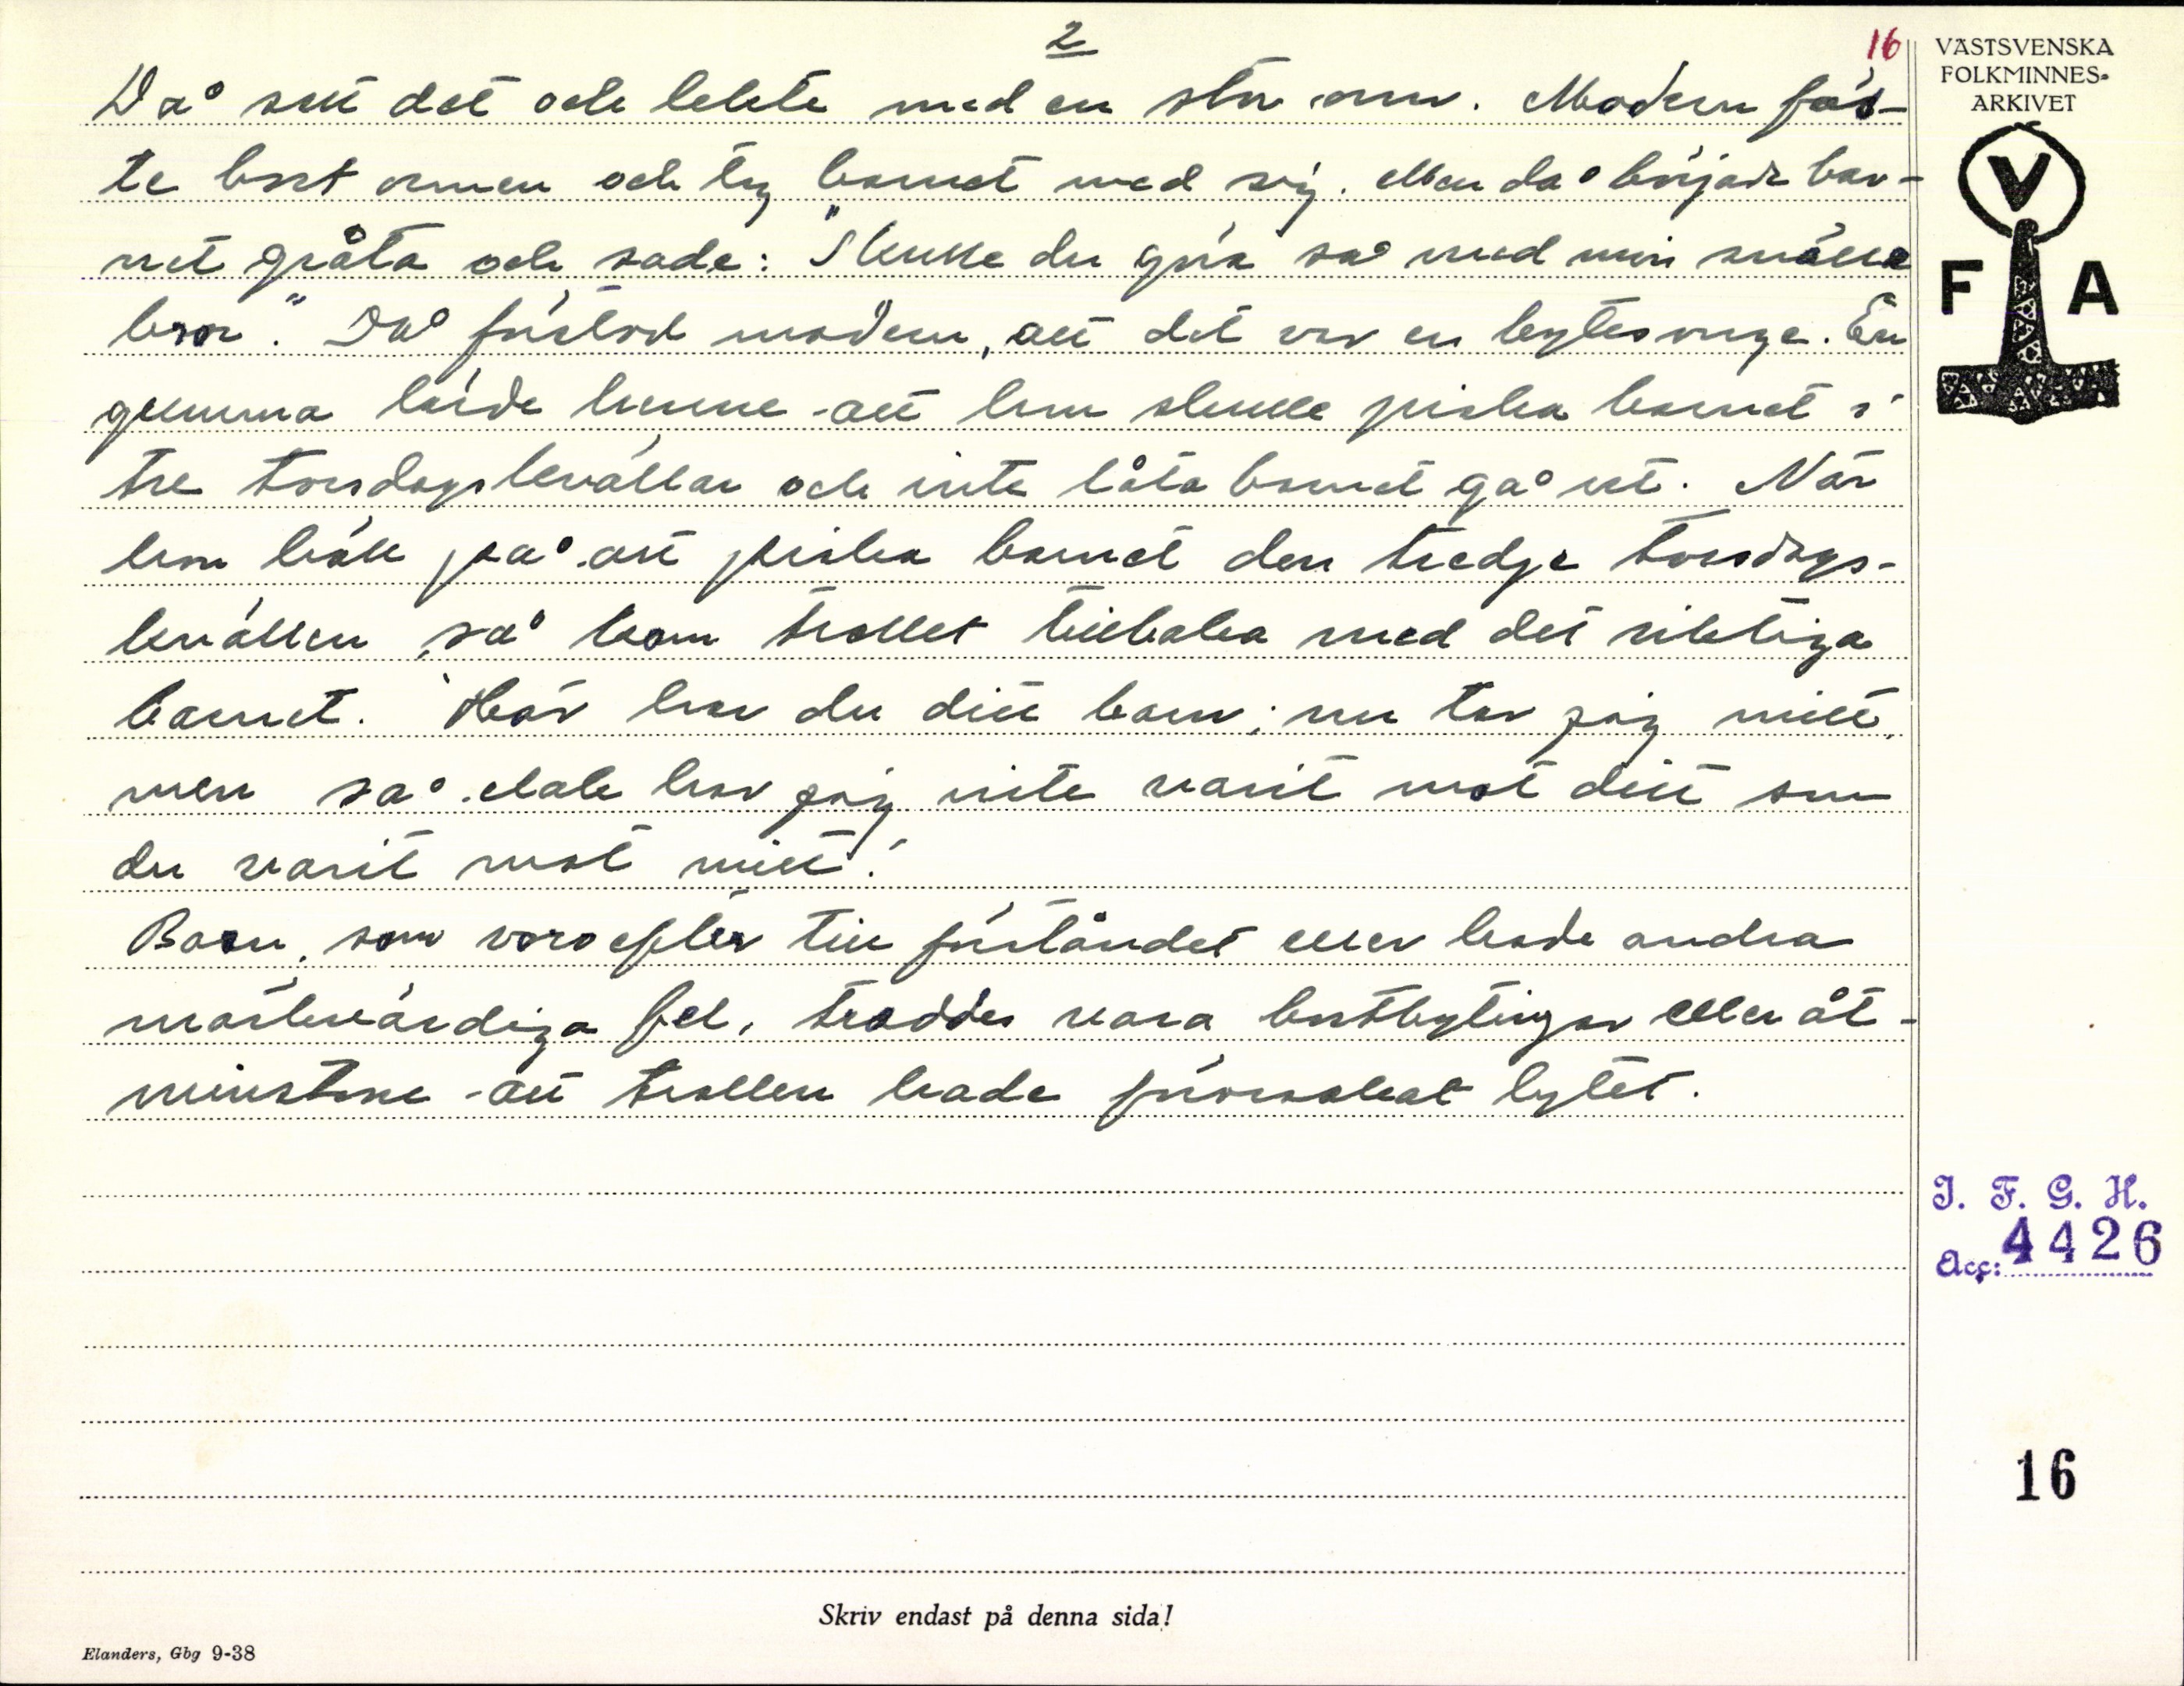 2
16
Då satt det och lekte med en stor orm. Modern fös-
te bort ormen och tog barnet med sig. Men då började bar-
net gråta och sade: "Skulle du göra så med min snälla
bror." Då förstod modern, att det var en bytesunge. En
gumma lärde henne att hon skulle piska barnet i
tre torsdagskvällar och inte låta barnet gå ut. När
hon höll på att piska barnet den tredje torsdags-
kvällen, så kom trollet tillbaka med det riktiga
barnet. "Här har du ditt barn; nu tar jag mitt,
men så elak har jag inte varit mot ditt som
du varit mot mitt."
Barn, som voro efter till förståndet eller hade andra
märkvärdiga fel, troddes vara bortbytingar eller åt-
minstone att trollen hade förorsakat lytet.
VÄSTSVENSKA
FOLKMINNES-
ARKIVET
V
F A
I. F. G. H.
Acc: 4426
16
Skriv endast på denna sida!
Elanders, Gbg 9-38